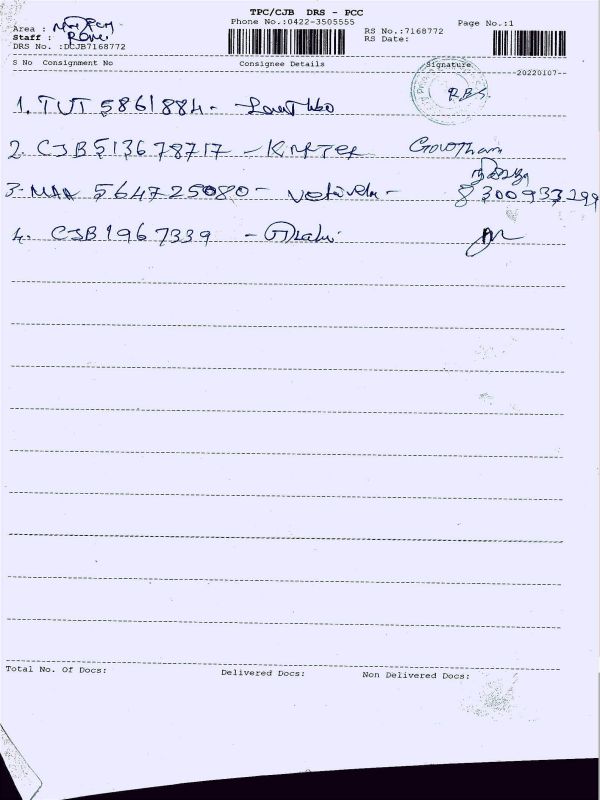 TPC/CJB DRS - PCC
Phone No.:0422-3505555
Page No.:1
Area :
Staff :
DRS No. :DCJB7168772
RS No.:7168772
RS Date:
S No Consignment No Consignee Details Signature
20220107--
1. TUT 5861884 - R.B.S.
2. CJB 513678717 - Gowtham
3- MAA 564725080 - 8300933299
4. CJB 1967339 -
Total No. Of Docs: Delivered Docs: Non Delivered Docs: